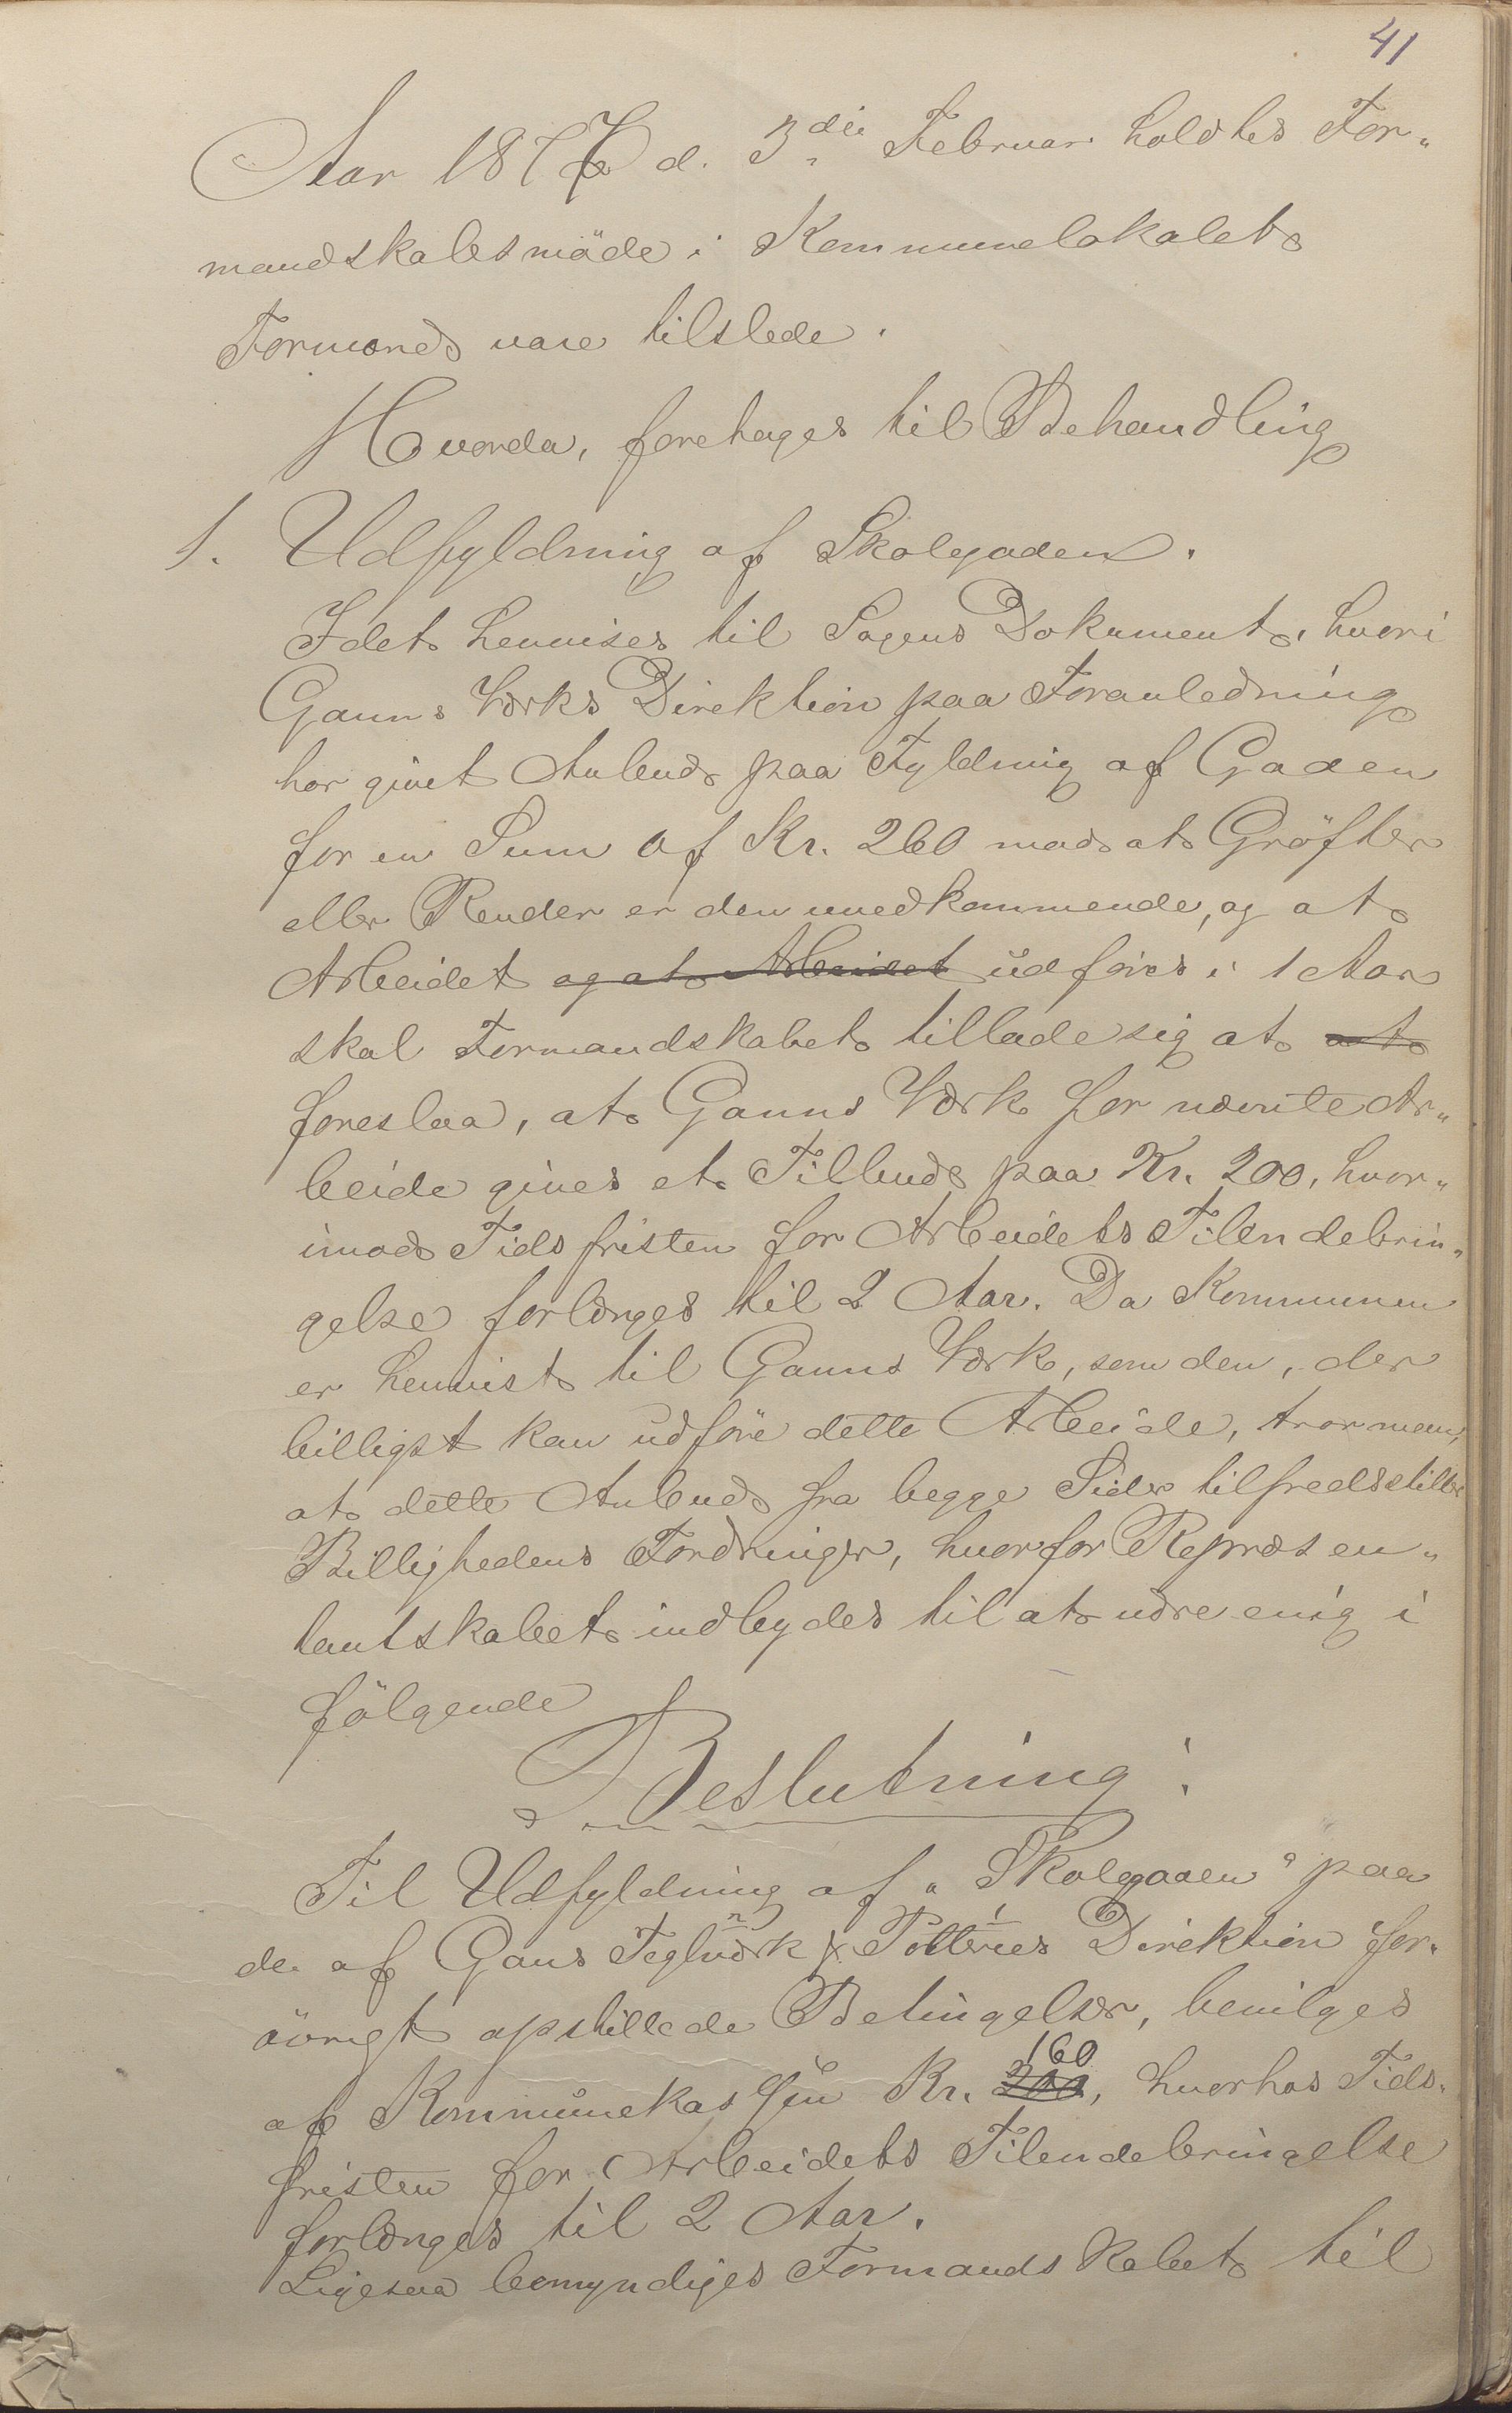 41
Aar 1877 d. 3die Februar holdtes For„
mandskabsmöde i Kommunelokalet
Formænd vare tilstede.
Hvorda, foretages til Behandling
1. Udfyldning af Skolegaden.
Idet henvises til Sagens Dokument, hvori
Ganns Værks Direktion paa Foranledning
har givet Anbud paa Fyldning af Gaden
for en Sum af Kr. 260 mod at Gröfter
eller Render er den uvedkommende, og at
Arbeidet og at Arbeidet udföres i 1 Aar
skal Formandskabet tillade sig at at
foreslaa, at Ganns Værk for nævnte Ar„
beide gives et Tilbud paa Kr. 200, hvor„
imod Tidsfristen for Arbeidets Tilendebrin„
gelse forlænges til 2 Aar. Da Kommunen
er henvist til Ganns Værk, som den, der
billigst kan udföre dette Arbeide, tror man,
at dette Anbud fra begge Sider tilfredsstiller
Billighedens Fordringer, hvorfor Repræsen„
tantskabet indbydes til at være enig i
fölgende
Beslutning:
Til Udfyldning af „Skolegaden“ paa
de af Gans Teglværk & Potteries Direktion for„
övrigt opstillede Betingelser, bevilges
af Kommunekassen Kr. 200 160, hvorhos Tids„
fristen for Arbeidets Tilendebringelse
forlænges til 2 Aar.
Ligesaa bemyndiges Formandskabet til